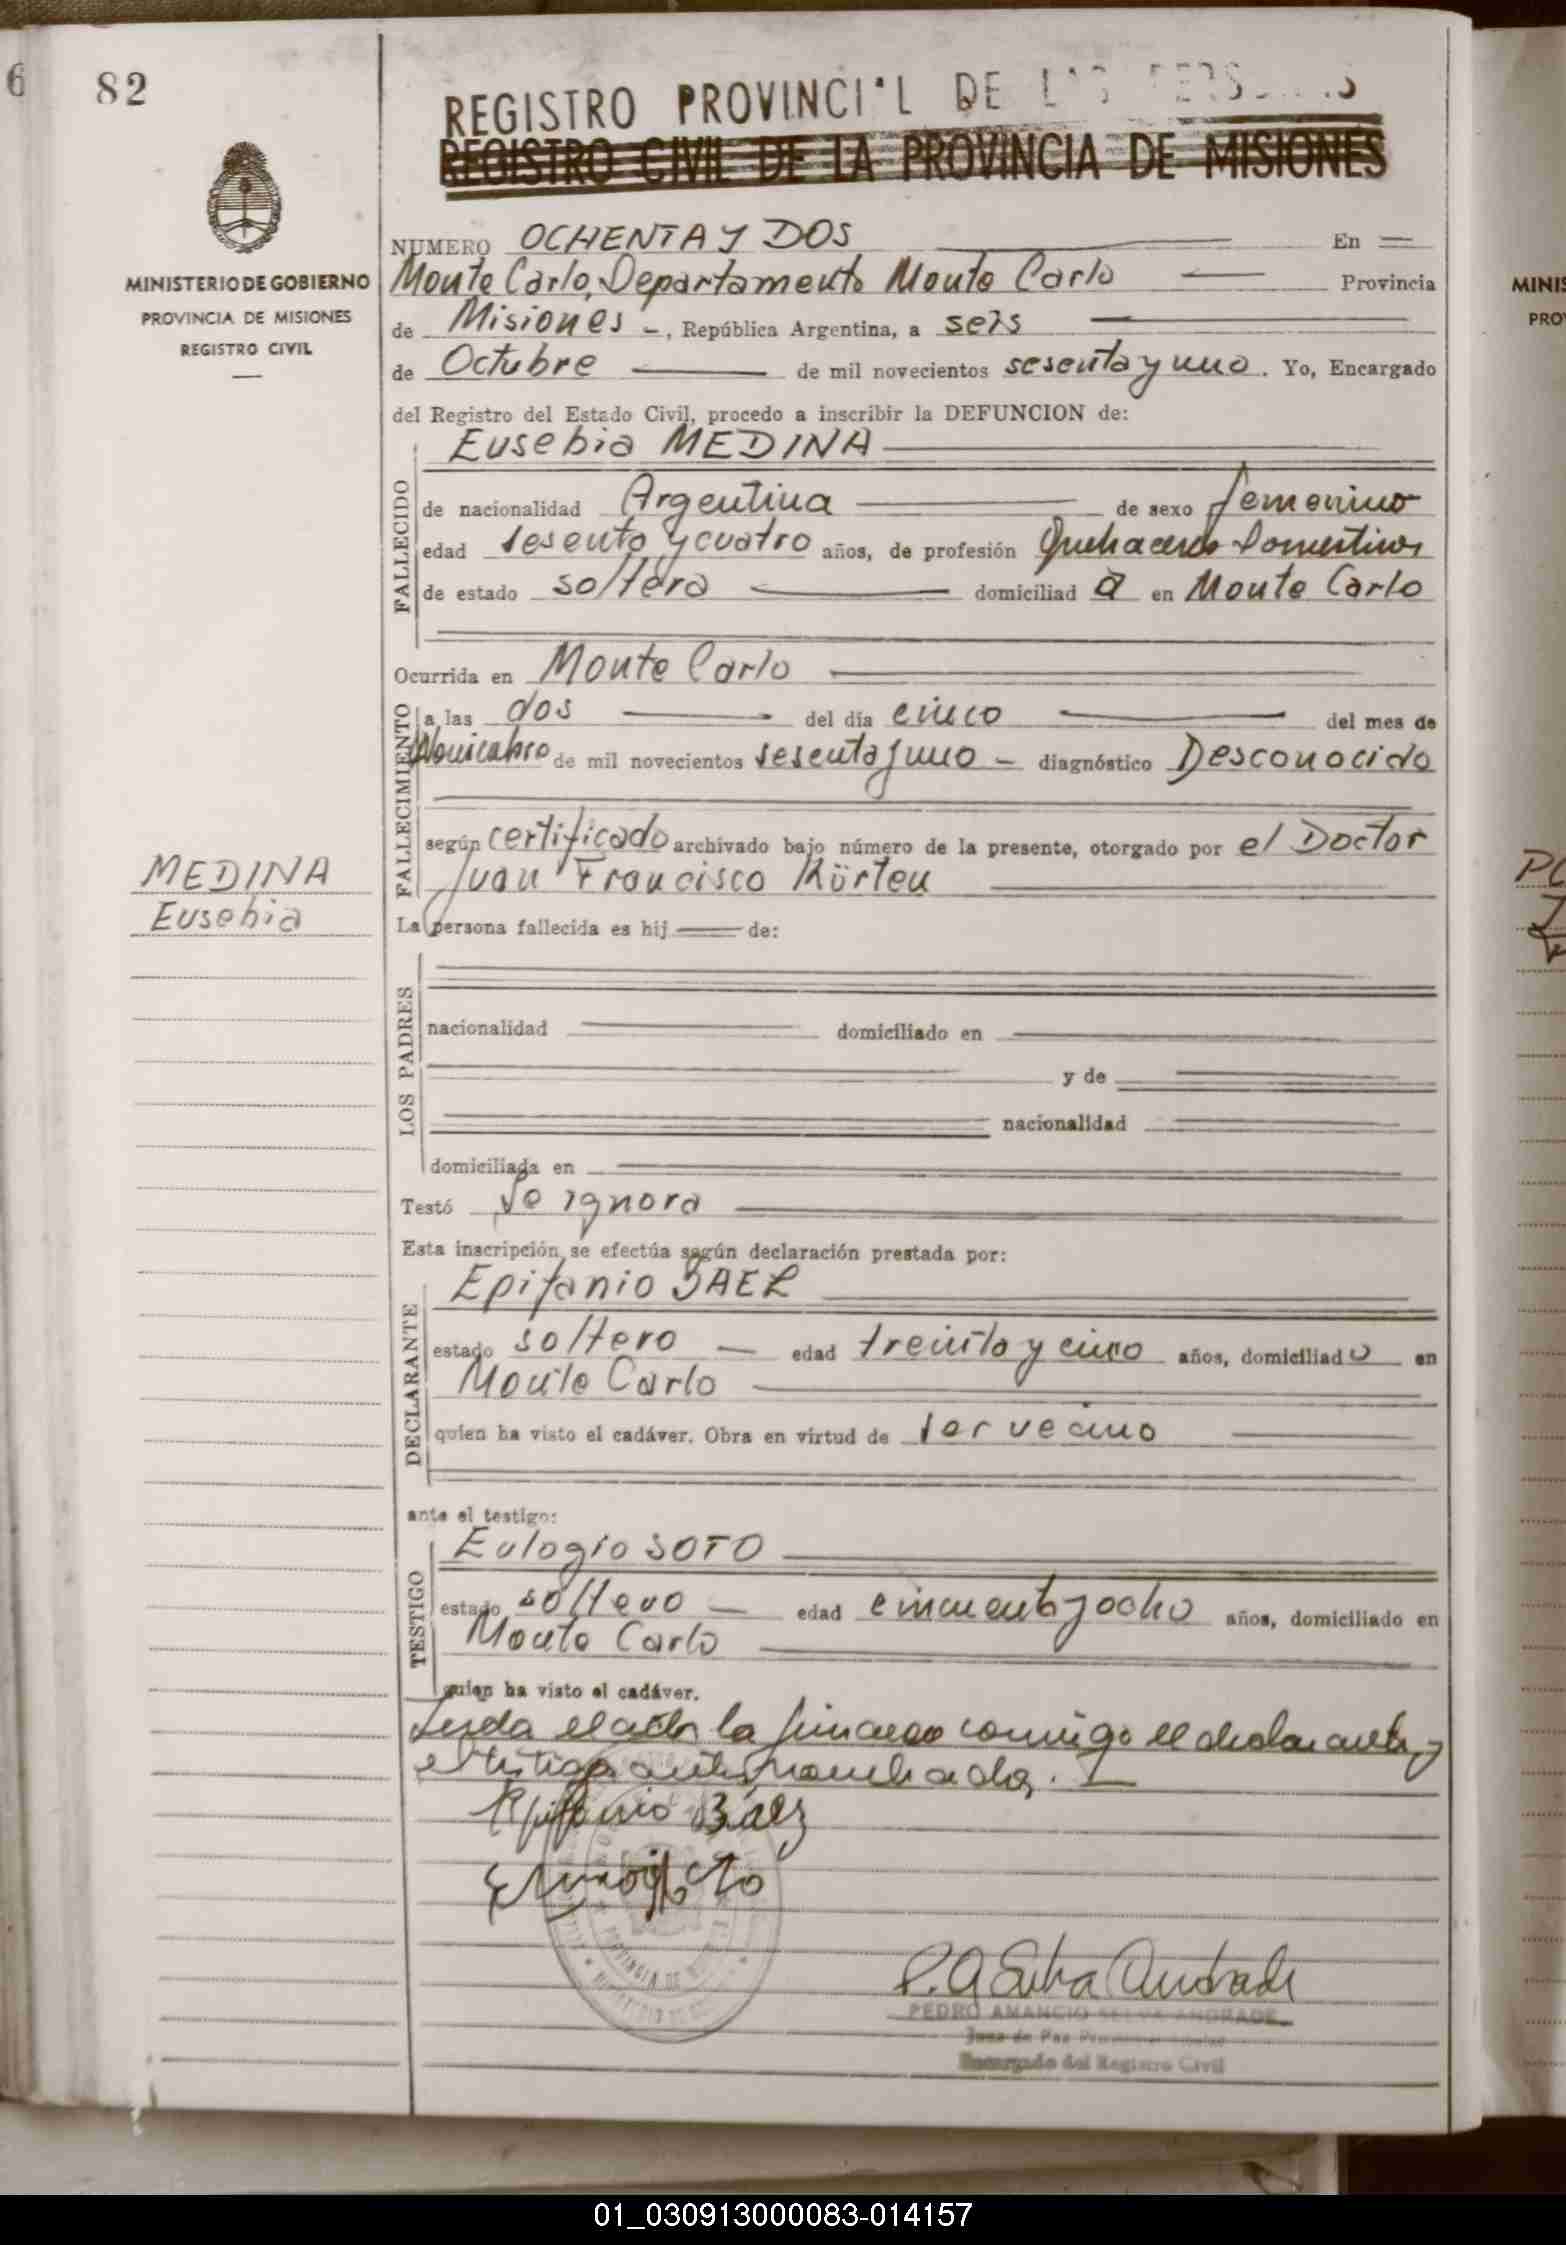 6 82
REGISTRO PROVINCI L DE
REGISTRO CIVIL DE LA PROVINCIA DE MISIONES
MINISTERIO DE GOBIERNO
PROVINCIA DE MISIONES
REGISTRO CIVIL
NUMERO OCHENTA Y DOS En
Monte Carlo, Departamento Monte Carlo Provincia
de Misiones -, República Argentina, a seis
de Octubre de mil novecientos sesenta y uno. Yo, Encargado
del Registro del Estado Civil, procedo a inscribir la DEFUNCION de:
Eusebia MEDINA
FALLECIDO
de nacionalidad Argentina de sexo femenino
edad sesenta y cuatro años, de profesión Quehaceres Domesticos
de estado soltera domiciliad a en Monte Carlo
Ocurrida en Monte Carlo
FALLECIMIENTO
a las dos del día cinco del mes de
de mil novecientos sesenta y uno - diagnóstico Desconocido
según certificado archivado bajo número de la presente, otorgado por el Doctor
Juan Francisco Kürten
MEDINA
Eusebia
La persona fallecida es hij de:
LOS PADRES
nacionalidad domiciliado en
y de
nacionalidad
domiciliada en
Testó Se ignora
Esta inscripción se efectúa según declaración prestada por:
Epifanio BAEZ
DECLARANTE
estado soltero - edad treinta y cinco años, domiciliado en
Monte Carlo
quien ha visto el cadáver. Obra en virtud de ser vecino
ante el testigo:
Eulogio SOTO
TESTIGO
estado soltero - edad cincuenta y ocho años, domiciliado en
Monte Carlo
quien ha visto el cadáver.
Leida el acta la firmaron conmigo el declarante y
el testigo antes nombrados.
Epifanio Báez
PROVINCIA DE
P. A Selva Andrade
PEDRO AMANCIO SELVA ANDRADE
Juez de Paz
Encargado del Registro Civil
MINIS
PRO
01_030913000083-014157